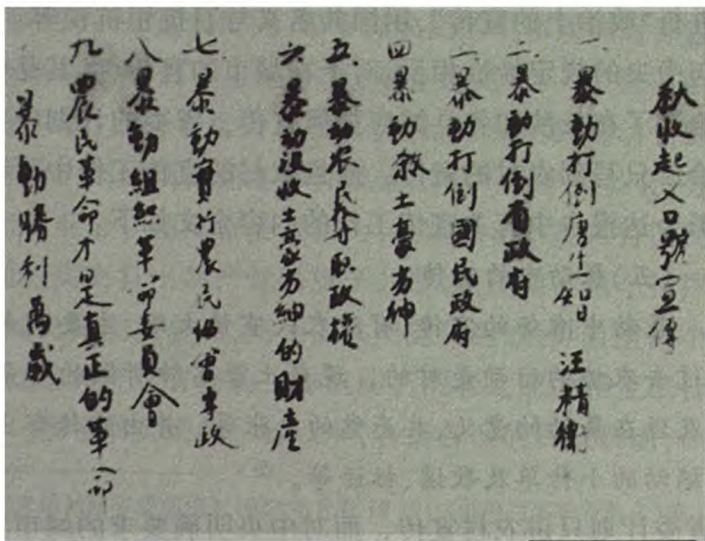 秋收起义口號宣傳
一、暴動打倒唐生智 汪精衛
二、暴動打倒省政府
三、暴動打倒國民政府
四暴動殺土豪劣紳
五、暴動農民奪取政權
六、暴動没收土豪劣紳的財產
七、暴動實行農民協會專政
八暴動組織革命委員會
九農民革命才是真正的革命
暴動勝利萬歲